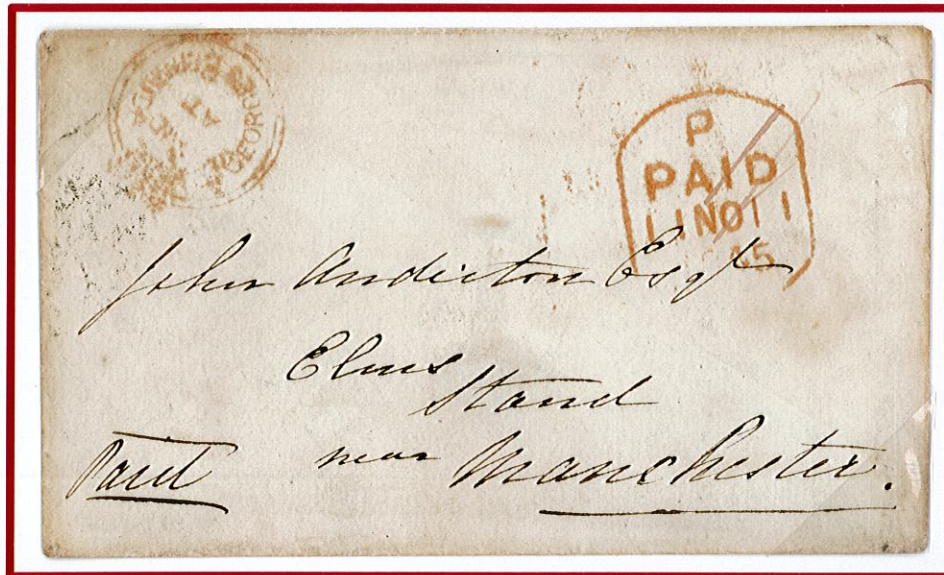 P
PAID
11 NO 11
45
John Anderton Esqr
Elms
Stand
near Manchester.
Paid